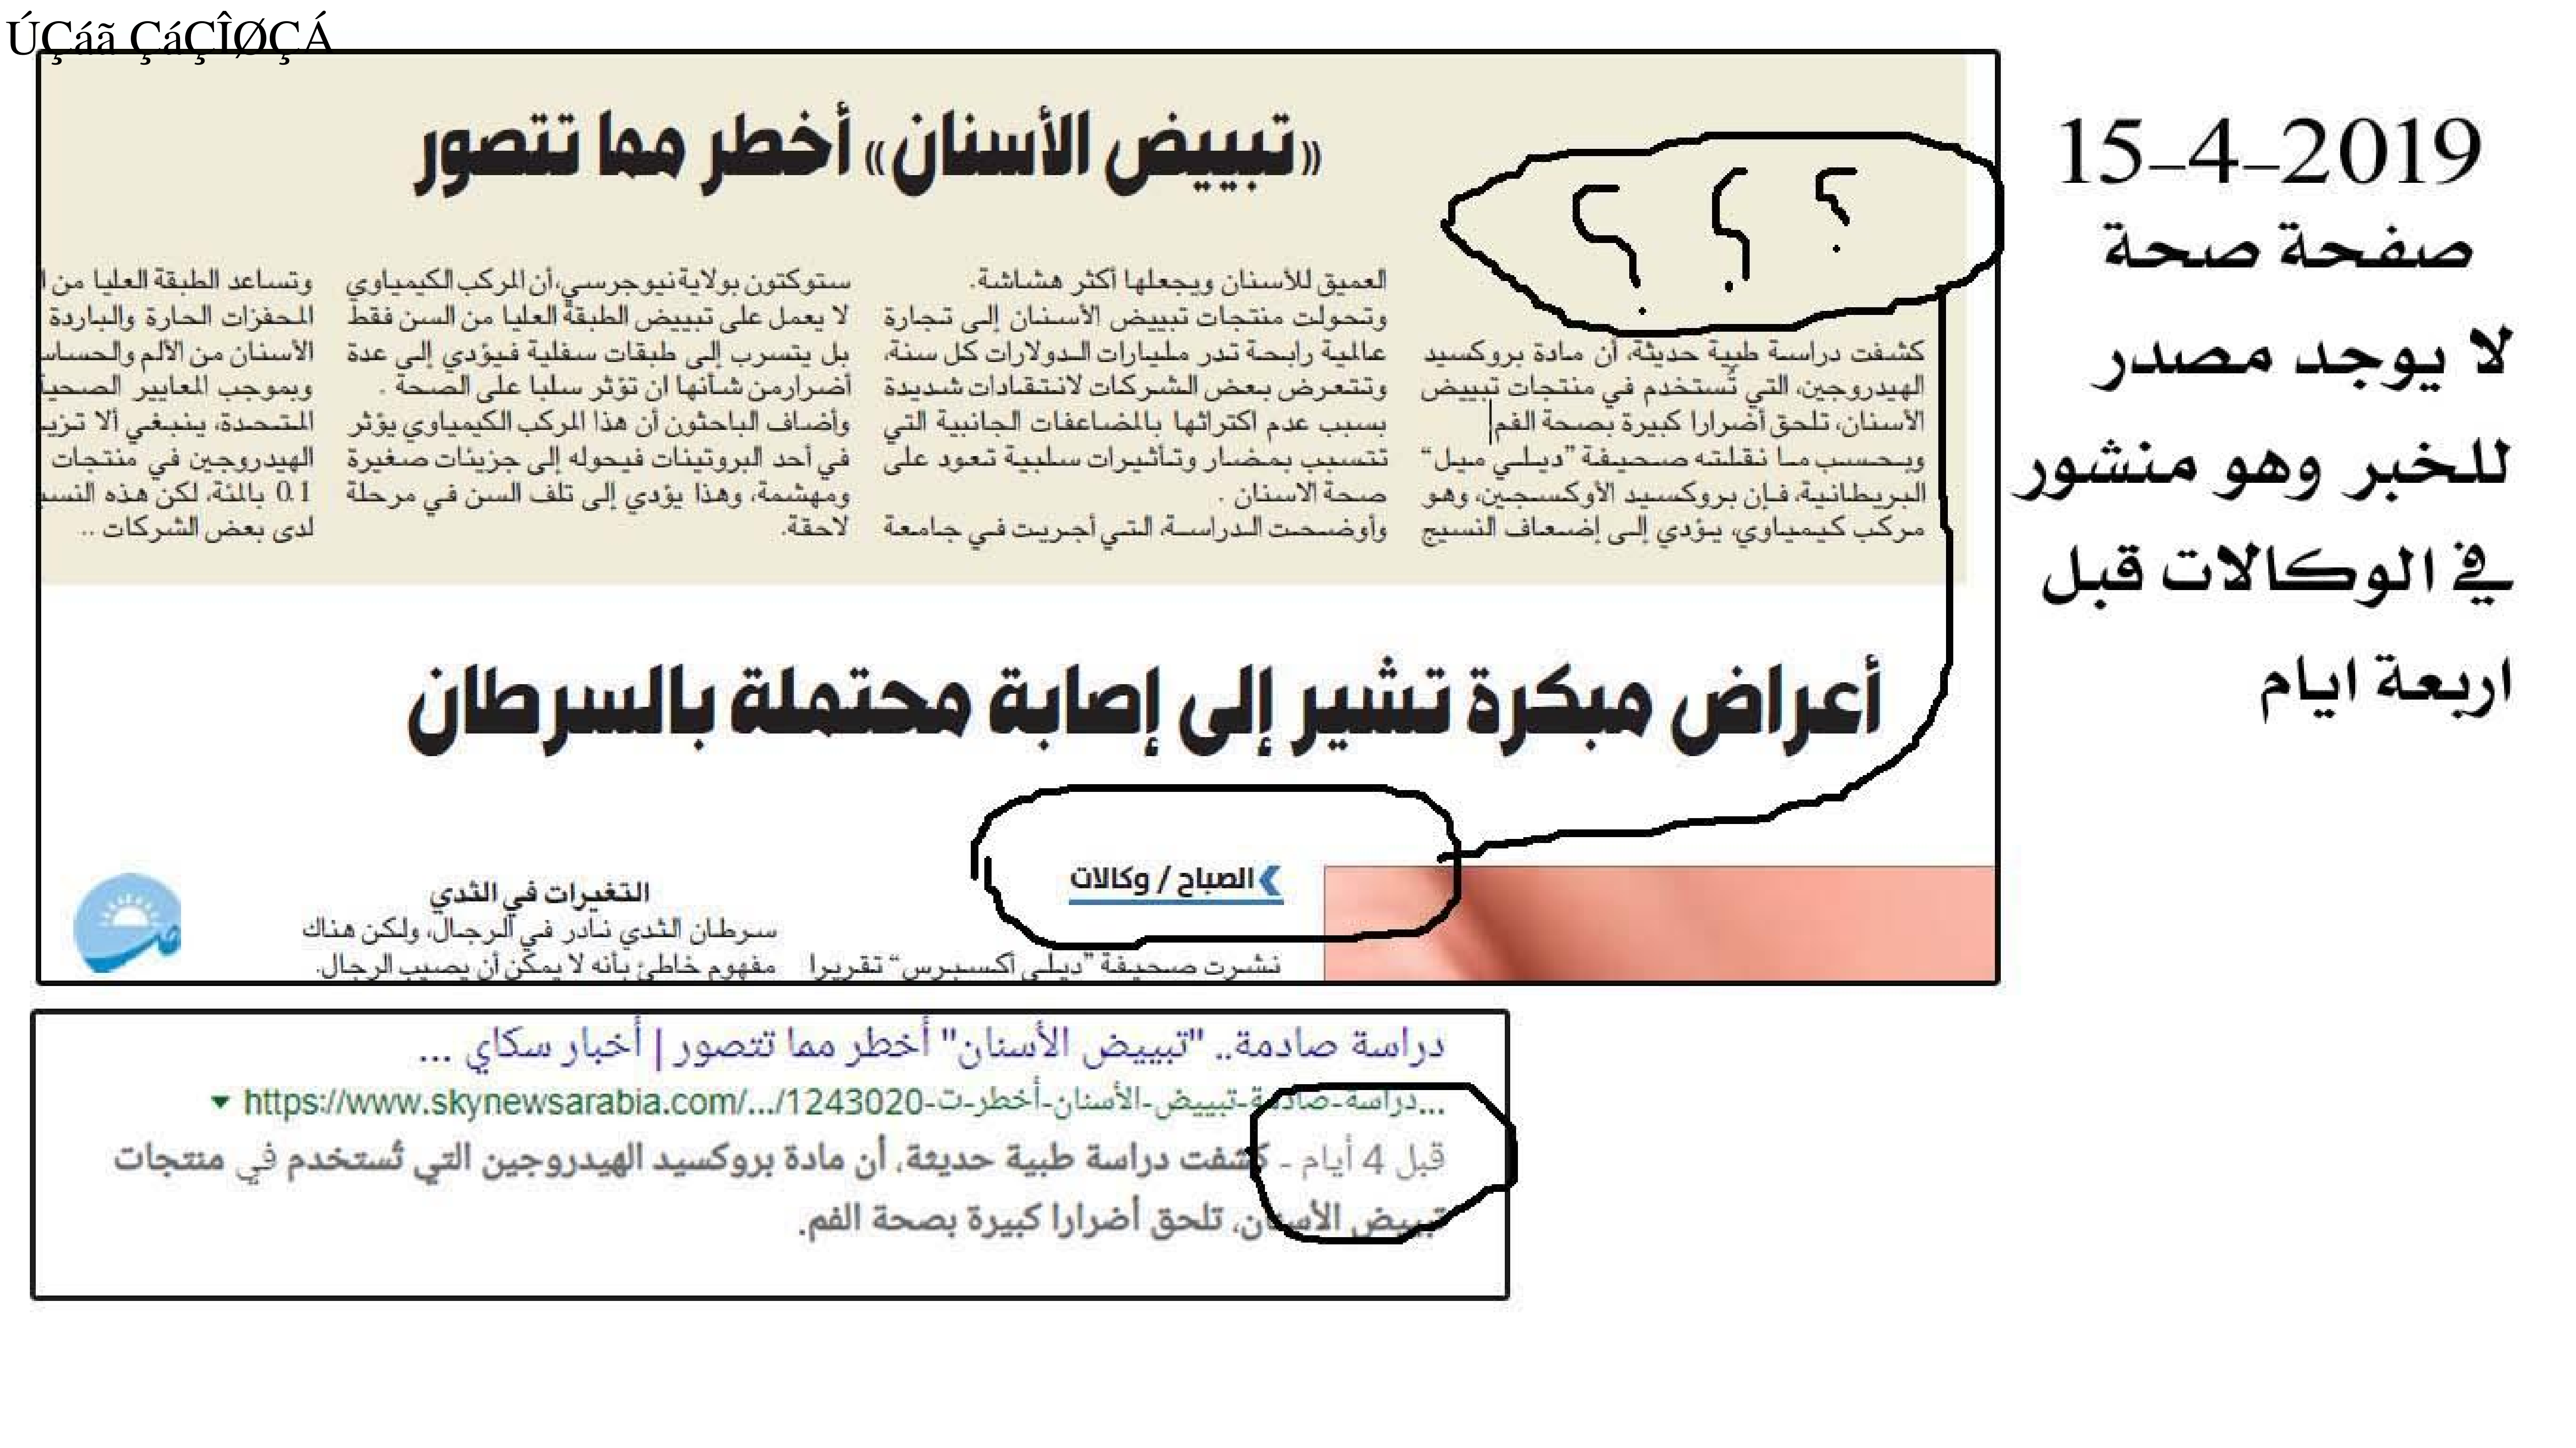 ÚÇáã ÇáÇÎØÇÁ
15-4-2019
صفحة صحة
لا يوجد مصدر
للخبر وهو منشور
في الوكالات قبل
اربعة ايام
«تبييض الأسنان» أخطر مما تتصور
؟ ؟ ؟
كشفت دراسة طبية حديثة، أن مادة بروكسيد
الهيدروجين، التي تُستخدم في منتجات تبييض
الأسنان، تلحق أضرارا كبيرة بصحة الفم
وبحسب ما نقلته صحيفة ”ديلي ميل“
البريطانية، فإن بروكسيد الأوكسجين، وهو
مركب كيمياوي، يؤدي إلى إضعاف النسيج
العميق للأسنان ويجعلها أكثر هشاشة.
وتحولت منتجات تبييض الأسنان إلى تجارة
عالمية رابحة تدر مليارات الدولارات كل سنة،
وتتعرض بعض الشركات لانتقادات شديدة
بسبب عدم اكتراثها بالمضاعفات الجانبية التي
تتسبب بمضار وتأثيرات سلبية تعود على
صحة الاسنان .
وأوضحت الدراسة، التي أجريت في جامعة
ستوكتون بولاية نيوجرسي،أن المركب الكيمياوي
لا يعمل على تبييض الطبقة العليا من السن فقط
بل يتسرب إلى طبقات سفلية فيؤدي إلى عدة
أضرارمن شأنها ان تؤثر سلبا على الصحة .
وأضاف الباحثون أن هذا المركب الكيمياوي يؤثر
في أحد البروتينات فيحوله إلى جزيئات صغيرة
ومهشمة، وهذا يؤدي إلى تلف السن في مرحلة
لاحقة.
وتساعد الطبقة العليا من
المحفزات الحارة والباردة
الأسنان من الألم والحساس
وبموجب المعايير الصحية
المتحدة، ينبغي ألا تزيد
الهيدروجين في منتجات
0.1 بالمئة، لكن هذه النسب
لدى بعض الشركات ..
أعراض مبكرة تشير إلى إصابة محتملة بالسرطان
الصباح / وكالات
نشرت صحيفة ”ديلي أكسبرس“ تقريرا
التغيرات في الثدي
سرطان الثدي نادر في الرجال، ولكن هناك
مفهوم خاطئ بأنه لا يمكن أن يصيب الرجال.
دراسة صادمة.. "تبييض الأسنان" أخطر مما تتصور | أخبار سكاي ...
https://www.skynewsarabia.com/.../1243020-دراسة-صادمة-تبييض-الأسنان-أخطر-ت...
قبل 4 أيام - كشفت دراسة طبية حديثة، أن مادة بروكسيد الهيدروجين التي تُستخدم في منتجات
تبييض الأسنان، تلحق أضرارا كبيرة بصحة الفم.